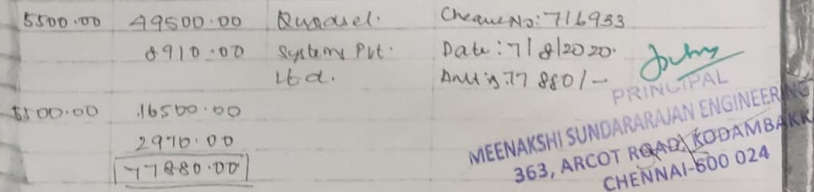 5500.00 49500.00 Quadsel. Cheque No: 716933
8910.00 Systems Pvt. Date: 7/8/2020.
Ltd. Amt: 77880/-
PRINCIPAL
5500.00 16500.00
2970.00
77880.00
MEENAKSHI SUNDARARAJAN ENGINEERING
363, ARCOT ROAD, KODAMBAKK
CHENNAI-600 024